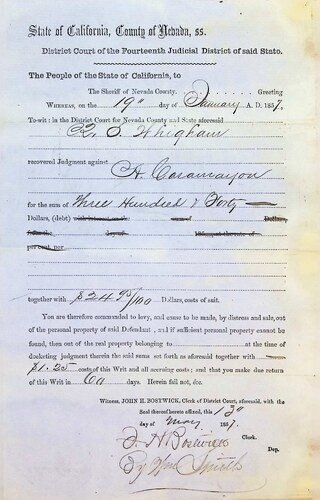 State of California, County of Nevada, ss.
District Court of the Fourteenth Judicial District of said State.
The People of the State of California, to
The Sheriff of Nevada County. Greeting
WHEREAS, on the 19" day of January A. D. 1857.
To-wit: in the District Court for Nevada County and State aforesaid
Whigham
recovered Judgment against
A. Casamayou
for the sum of Three Hundred & Forty
Dollars, (debt) with interest on the sum of Dollars,
from the day of 185 , at the rate of
per cent. per
together with $24 95/100 Dollars, costs of suit.
You are therefore commanded to levy, and cause to be made, by distress and sale, out
of the personal property of said Defendant , and if sufficient personal property cannot be
found, then out of the real property belonging to at the time of
docketing judgment therein the said sums set forth as aforesaid together with
$1.25 costs of this Writ and all accruing costs; and that you make due return
of this Writ in 60 days. Herein fail not, &c.
Witness, JOHN H. BOSTWICK, Clerk of District Court, aforesaid, with the
Seal thereof hereto affixed, this 13"
day of May 1857.
J. H. Bostwick Clerk.
By Wm Smith Dep.